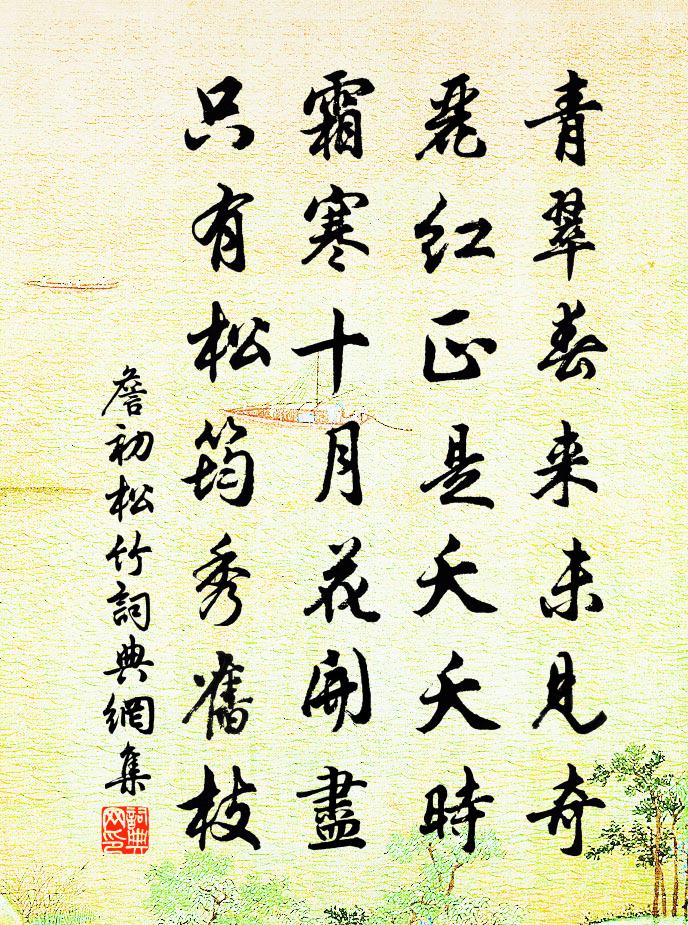 青翠春来未見奇
麗红正是夭夭時
霜寒十月花開盡
只有松筠秀舊枝
詹初松竹詞典網集
詞典网印